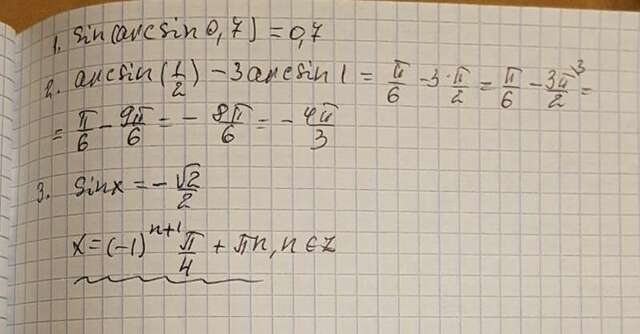 1. sin(arcsin 0,7) = 0,7
2. arcsin(1/2) - 3 arcsin 1 = π/6 - 3·π/2 = π/6 - 3π/2 ³ =
= π/6 - 9π/6 = - 8π/6 = - 4π/3
3. sinx = - √2/2
x = (-1)ⁿ⁺¹ π/4 + πn, n ∈ Z